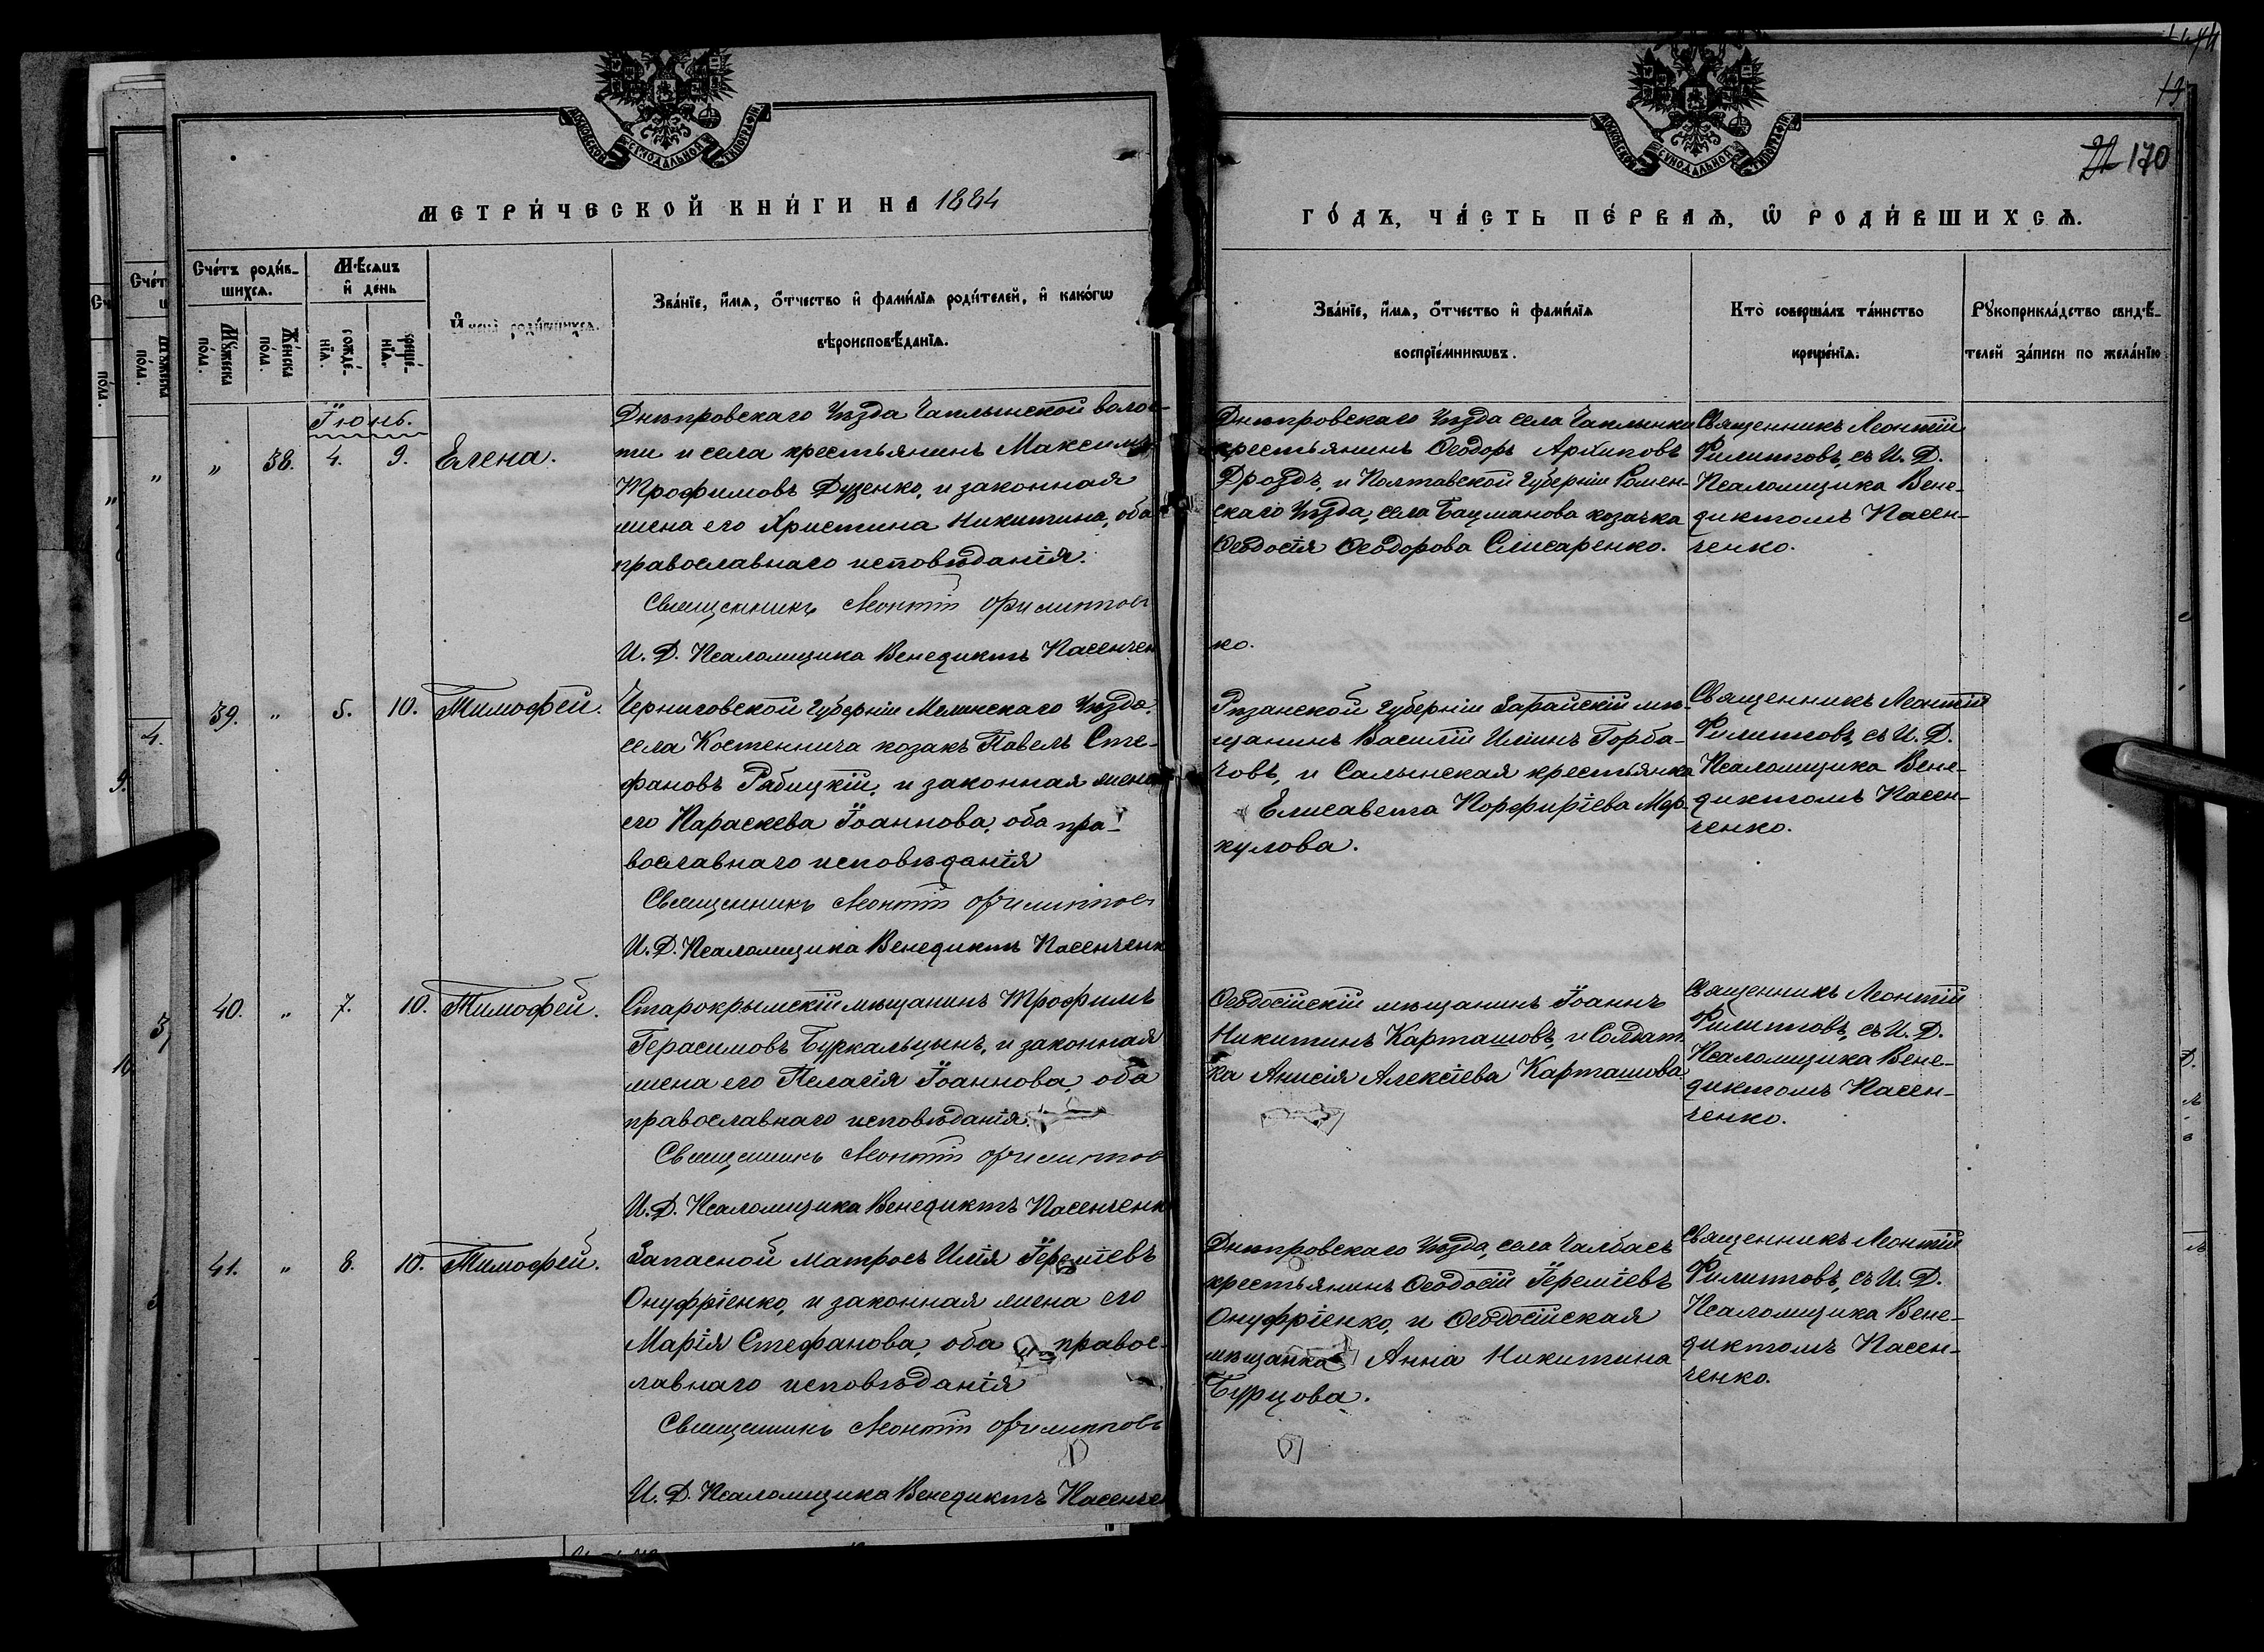 МЕТРИ́ЧЕСКОЙ КНИ́ГИ НА 1884
ГО́ДЪ, ЧА́СТЬ ПЕ́РВАѦ, Ѡ҆ РОДИ́ВШИХСѦ.
МОСКОВСКОЙ СѴНОДАЛЬНОЙ ТИПОГРАФІИ
МОСКОВСКОЙ СѴНОДАЛЬНОЙ ТИПОГРАФІИ
19
22 170
Сче́тъ роди́в-
шихсѧ.
Мѣ́сѧцъ
и҆ де́нь
Мꙋ́жеска по́ла.
Же́нска по́ла.
рожде́-нїѧ.
креще́-нїѧ.
И҆мена̀ роди́вшихсѧ.
Зва́нїе, и҆́мѧ, ѻ҆́тчество и҆ фами́лїѧ роди́телей, и҆ како́гѡ
вѣроисповѣ́данїѧ.
Зва́нїе, и҆́мѧ, ѻ҆́тчество и҆ фами́лїѧ
воспрїе́мникѡвъ.
Кто̀ соверша́лъ та́инство
креще́нїѧ.
Рꙋкоприкла́дство свидѣ́-
телей за́писи по жела́нїю
Іюнь.
„ 38. 4. 9. Елена.
Днѣпровскаго Уѣзда Чаплынской волос-
ти и села крестьянинъ Максимъ
Трофимовъ Дузенко, и законная
жена его Христина Никитина, оба
православнаго исповѣданія.
Священникъ Леонтій Филиппов
И. Д. Псаломщика Венедиктъ Пасенчен
ко.
Днѣпровскаго Уѣзда села Чаплынки
крестьянинъ Ѳеодоръ Архиповъ
Дроздъ, и Полтавской Губерніи Ромен-
скаго Уѣзда, села Бацманова козачка
Ѳеодосія Ѳеодорова Слисаренко.
Священникъ Леонтій
Филипповъ, съ И. Д.
Псаломщика Вене-
диктомъ Пасен-
ченко.
39. „ 5. 10. Тимофей.
Черниговской Губерніи Мглинскаго Уѣзда,
села Костенича козакъ Павелъ Сте-
фановъ Рабицкій, и законная жена
его Параскева Іоаннова, оба пра-
вославнаго исповѣданія
Священникъ Леонтій Филиппов
И. Д. Псаломщика Венедиктъ Пасенченк
Рязанской Губерніи Зарайскій мѣ-
щанинъ Василій Илиинъ Горба-
човъ, и Салынская крестьянка
Елисавета Порфиріева Мер-
кулова.
Священникъ Леонтій
Филипповъ, съ И. Д.
Псаломщика Вене-
диктомъ Пасен-
ченко.
40. „ 7. 10. Тимофей.
Старокрымскій мѣщанинъ Трофимъ
Герасимовъ Буркальцынъ, и законная
жена его Пелагія Іоаннова, оба
православнаго исповѣданія.
Священникъ Леонтій Филиппов
И. Д. Псаломщика Венедиктъ Пасенченк
Ѳеодосійскій мѣщанинъ Іоаннъ
Никитинъ Карташовъ, и Солдат
ка Анисія Алексіева Карташова
Священникъ Леонтій
Филипповъ, съ И. Д.
Псаломщика Вене-
диктомъ Пасен-
ченко.
41. „ 8. 10. Тимофей.
Запасной матросъ Илія Іереміевъ
Онуфріенко, и законная жена его
Марія Стефанова, оба правос-
лавнаго исповѣданія
Священникъ Леонтій Филипповъ
И. Д. Псаломщика Венедиктъ Пасенче
Днѣпровскаго Уѣзда, села Чалбасъ
крестьянинъ Ѳеодосій Іереміевъ
Онуфріенко, и Ѳеодосійская
мѣщанка Анна Никитина
Бурцова.
Священникъ Леонтій
Филипповъ, съ И. Д.
Псаломщика Вене-
диктомъ Пасен-
ченко.